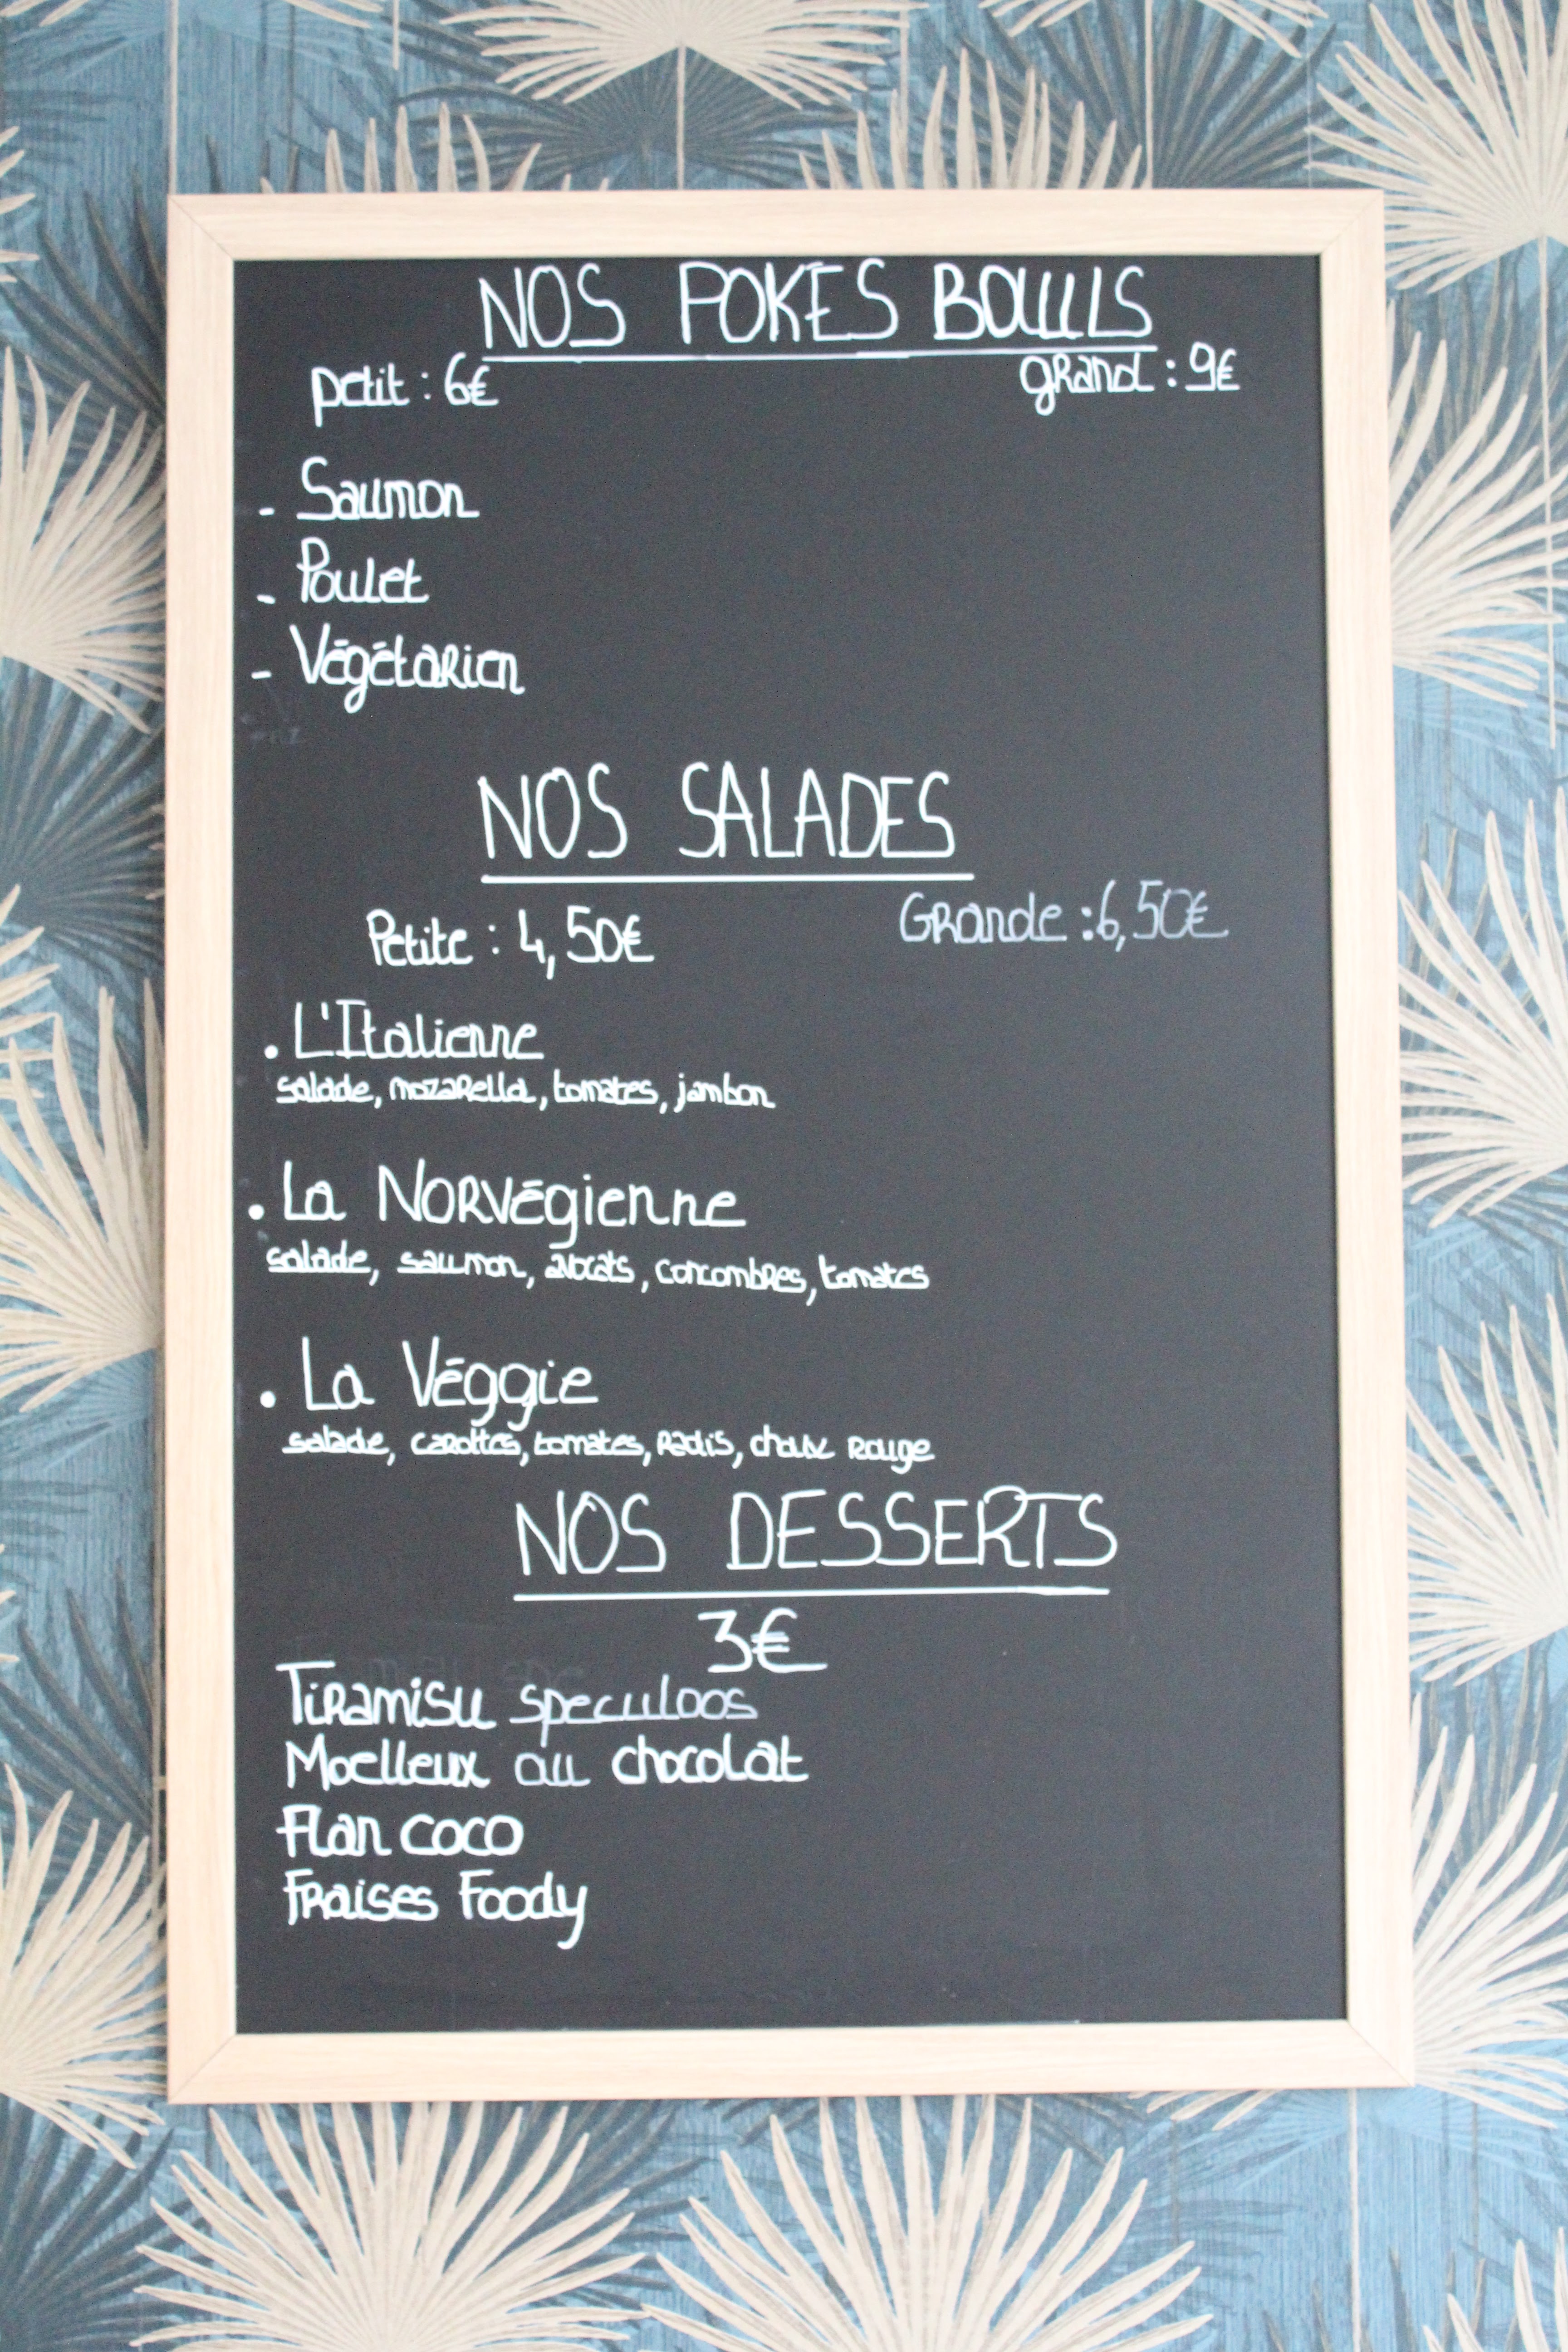 NOS POKES BOWLS
petit : 6€ grand : 9€
- Saumon
- Poulet
- Végétarien
NOS SALADES
Petite : 4,50€ Grande : 6,50€
. L'Italienne
salade, mozarella, tomates, jambon
. La Norvégienne
salade, saumon, avocats, concombres, tomates
. La Véggie
salade, carottes, tomates, radis, choux rouge
NOS DESSERTS
3€
Tiramisu speculoos
Moelleux au chocolat
Flan coco
Fraises Foody